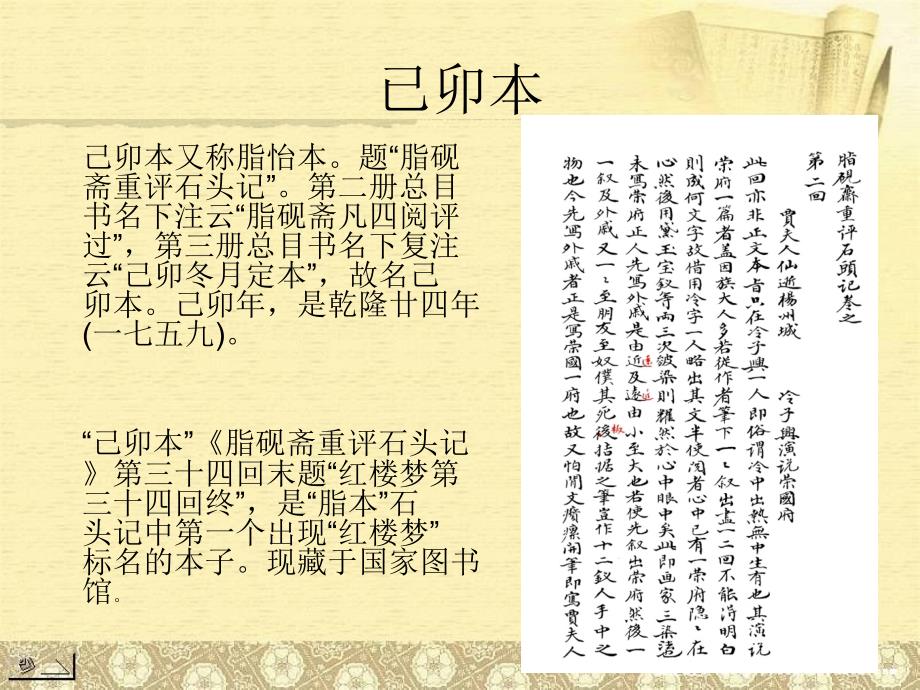 已卯本
己卯本又称脂怡本。题“脂砚
斋重评石头记”。第二册总目
书名下注云“脂砚斋凡四阅评
过”，第三册总目书名下复注
云“己卯冬月定本”，故名己
卯本。己卯年，是乾隆廿四年
(一七五九)。
“己卯本”《脂砚斋重评石头记
》第三十四回末题“红楼梦第
三十四回终”，是“脂本”石
头记中第一个出现“红楼梦”
标名的本子。现藏于国家图书
馆。
脂硯齋重評石頭記卷之
第二回
賈夫人仙逝楊州城 冷子興演説荣國府
此回亦非正文本旨只在冷子興一人即俗謂冷中出熱無中生有也其演説
荣府一篇者盖因族大人多若從作者筆下一〻叙出盡一二回不能得明白
則成何文字故借用冷字一人略出其文半使閱者心中已有一荣府隐〻在
心然後用黛玉宝釵等両三次皴染則耀然於心中眼中矣此即画家三染法
未寫荣府正人先寫外戚是由近及遠由小至大也若使先叙出荣府然後一
遠
近
一叙及外戚又一〻至朋友至奴僕其死後拮据之筆豈作十二釵人手中之
板
物也今先寫外戚者正是寫荣國一府也故又怕閒文瘰開筆即寫賈夫人